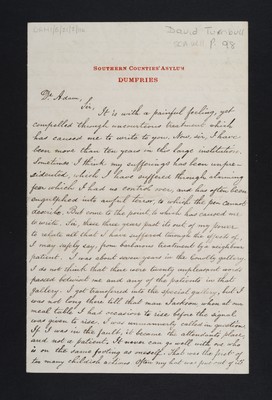 David Turnbull
P 98
SOUTHERN COUNTIES' ASYLUM
DUMFRIES
Dr Adam,
Sir,
It is with a painful feeling, yet
compelled through uncourteous treatment which
has caused me to write to you. Now, sir, I have
been more than ten years in this large institution.
Sometimes I think my sufferings has been unpre-
sidented, which I have suffered through alarming
fear which I had no control over, and has often been
engulphed into awful terror, to which the pen cannot
describe. But come to the point in which has caused me
to write. Sir, these three years past its out of my power
to relate all that I have suffered through the effects of
I may safely say, from barbarous treatment by a neighbour
patient. I was about seven years in the Crichton gallery.
I do not think that there were twenty unpleasant words
passed between me and any of the patients in that
gallery. I got transferred into the special gallery, but I
was not long there till that man Jackson when at our
meal table I had occasion to rise before the signal
was given to rise. I was unmannerly called in question
If I was in the fault, it became the attendants place,
and not a patient. It never can go well with me who
is on the same footing as oneself. That was the first of
too many childish actions. After my hat was put out of its